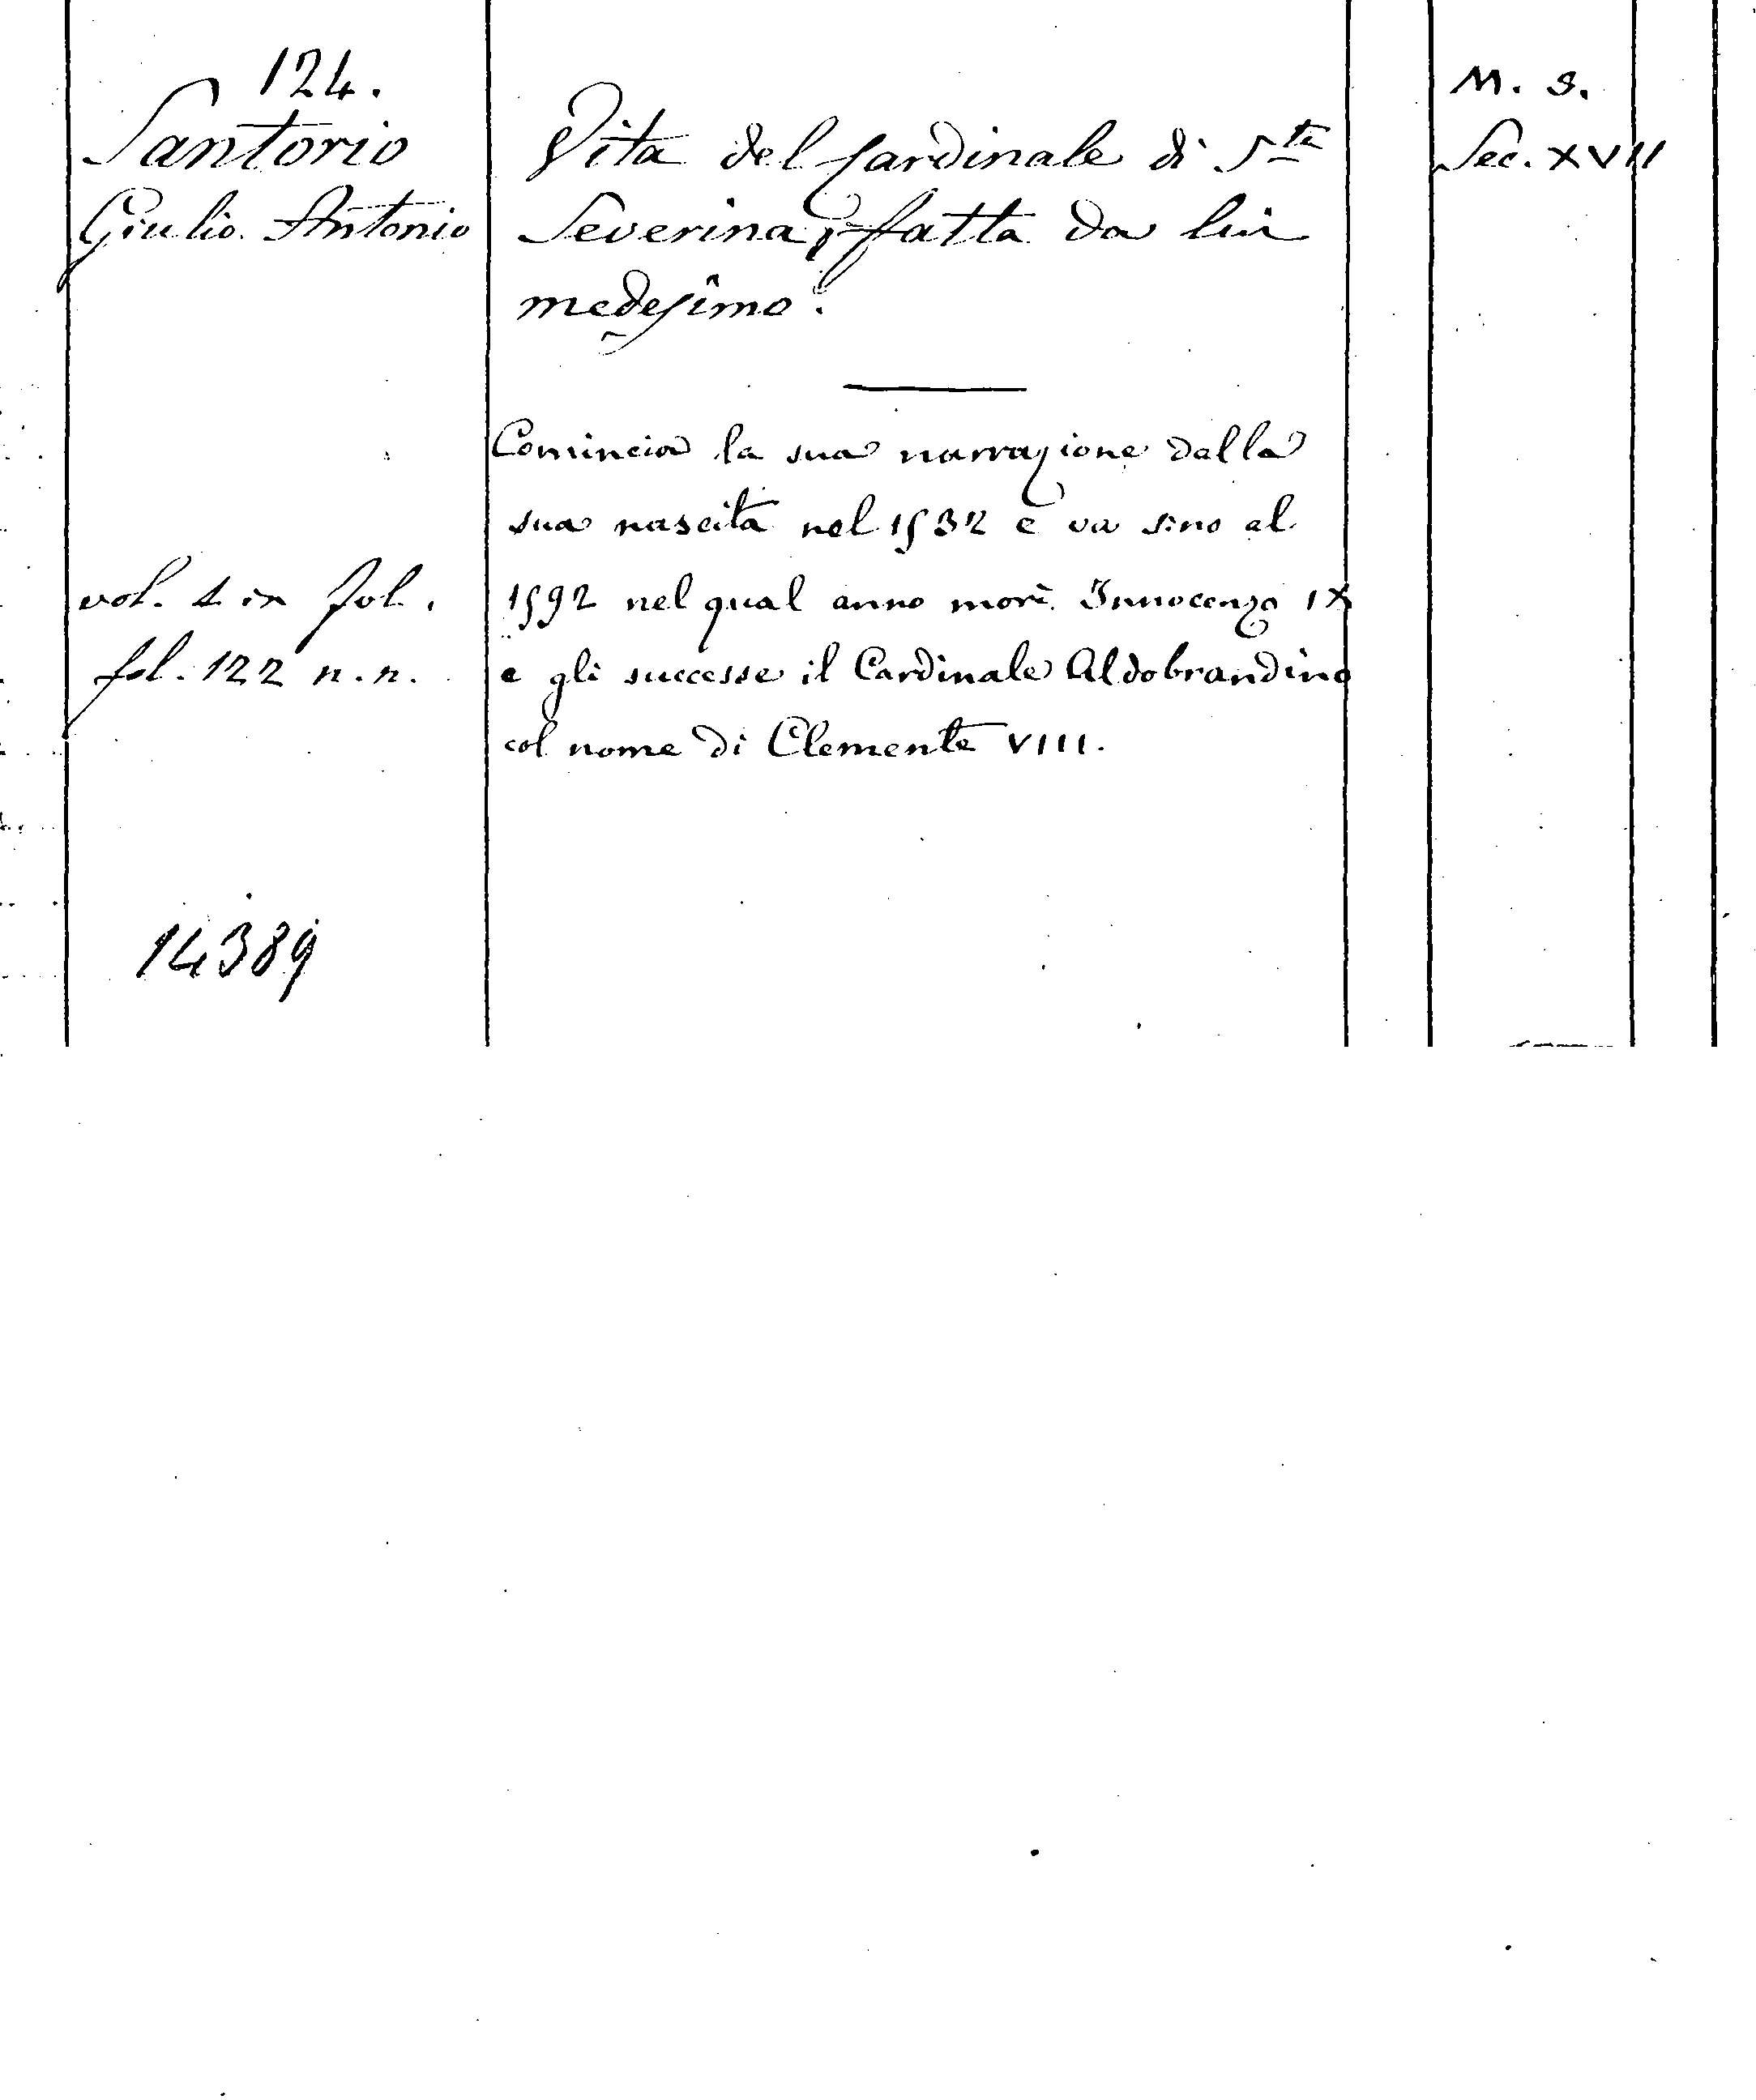 124.
Santorio
Giulio Antonio
vol. 1 in fol.
fol. 122 n.n.
14389
Vita del Cardinale di Sta
Severina, fatta da lui
medesimo.
Comincia la sua narrazione dalla
sua nascita nel 1532 e va sino al
1592 nel qual anno morì Innocenzo IX
e gli successe il Cardinale Aldobrandino
col nome di Clemente VIII.
M. S.
Sec. XVII